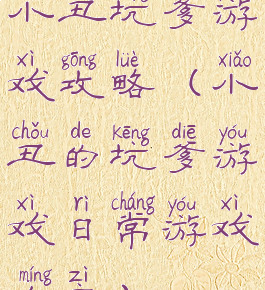 小丑坑爹游
xì gōng lüè xiǎo
戏攻略（小
chǒu de kēng diē yóu
丑的坑爹游
xì rì cháng yóu xì
戏日常游戏
míng zì